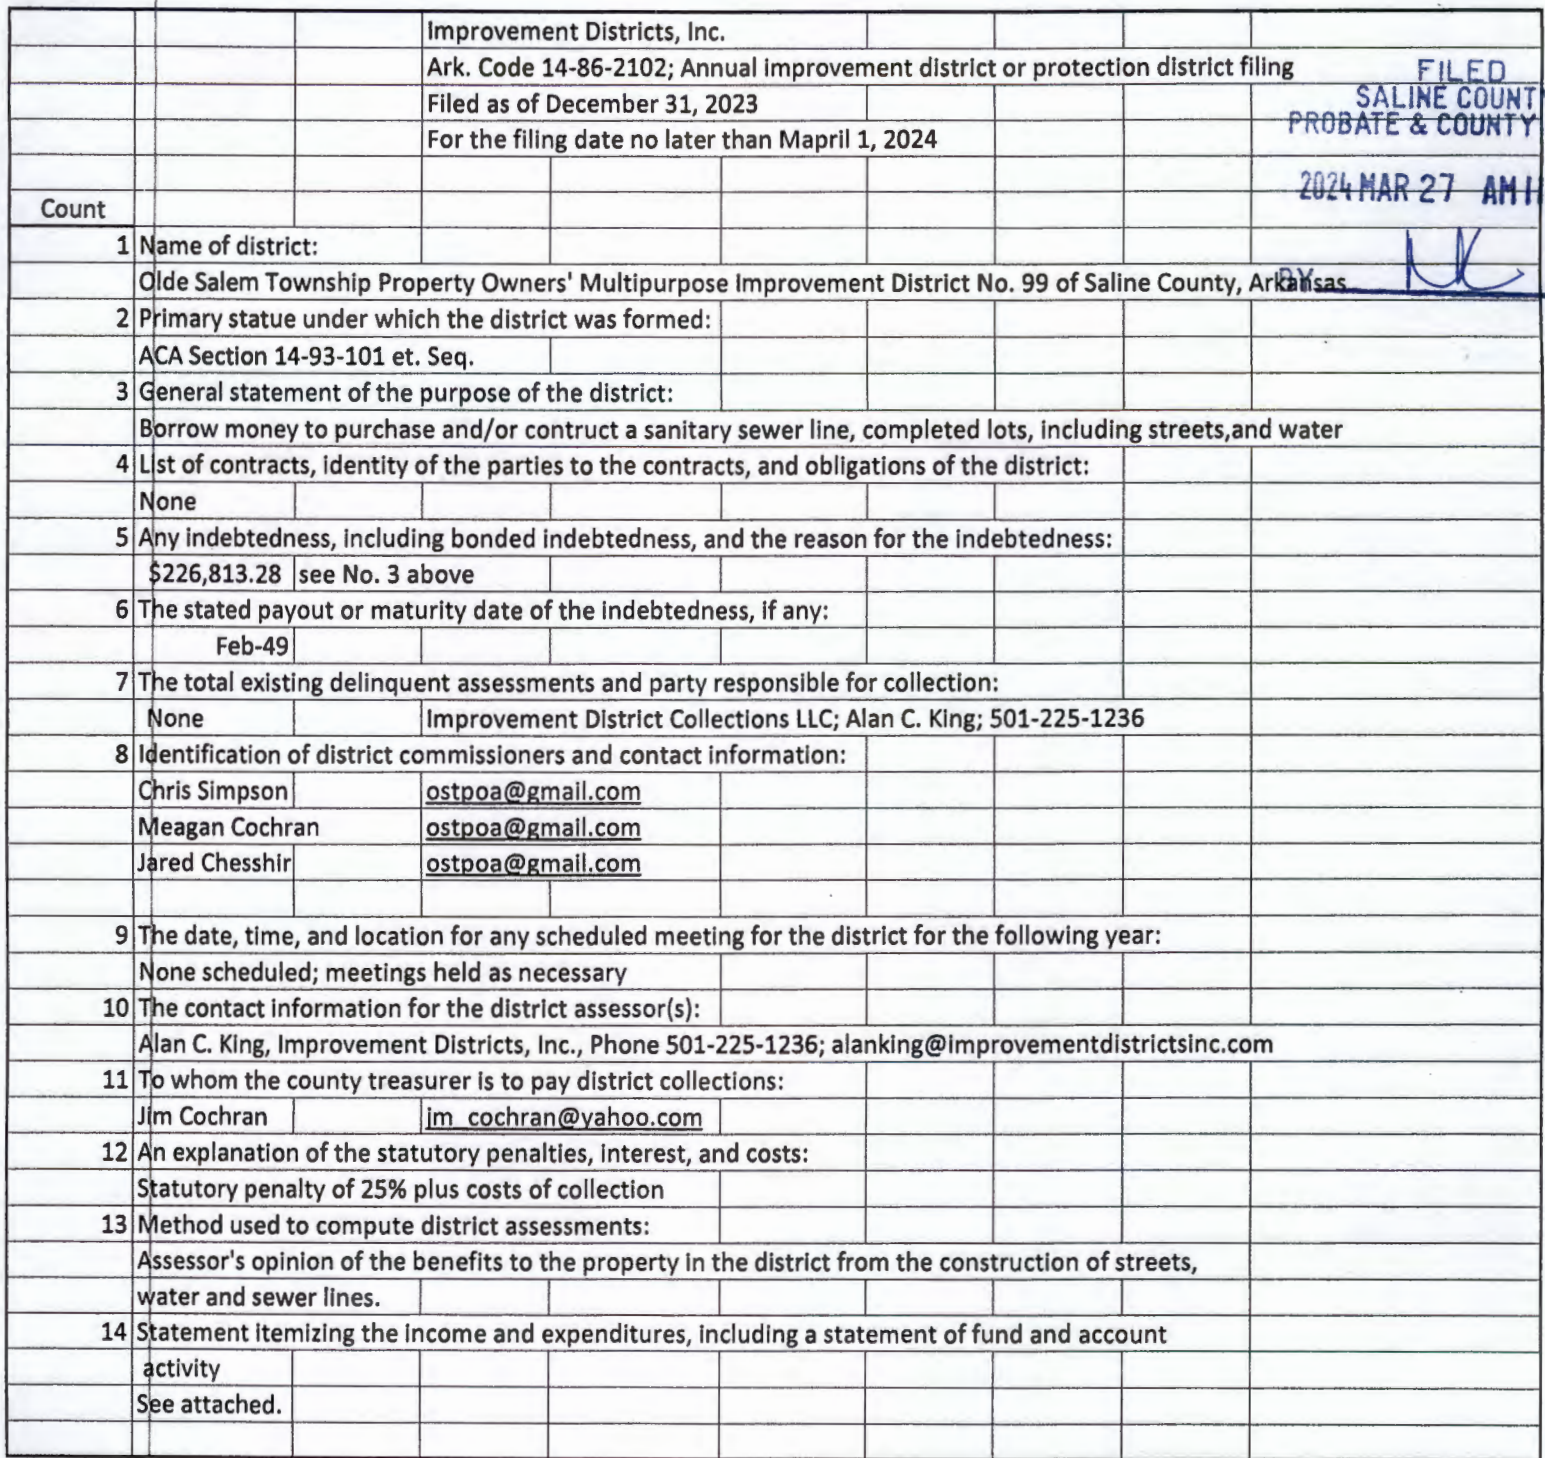 Improvement Districts, Inc.
Ark. Code 14-86-2102; Annual improvement district or protection district filing
Filed as of December 31, 2023
For the filing date no later than Mapril 1, 2024
FILED
SALINE COUNT
PROBATE & COUNTY
2024 MAR 27 AM 11
BY
Count
1 Name of district:
Olde Salem Township Property Owners' Multipurpose Improvement District No. 99 of Saline County, Arkansas
2 Primary statue under which the district was formed:
ACA Section 14-93-101 et. Seq.
3 General statement of the purpose of the district:
Borrow money to purchase and/or contruct a sanitary sewer line, completed lots, including streets,and water
4 List of contracts, identity of the parties to the contracts, and obligations of the district:
None
5 Any indebtedness, including bonded indebtedness, and the reason for the indebtedness:
$226,813.28 see No. 3 above
6 The stated payout or maturity date of the indebtedness, if any:
Feb-49
7 The total existing delinquent assessments and party responsible for collection:
None Improvement District Collections LLC; Alan C. King; 501-225-1236
8 Identification of district commissioners and contact information:
Chris Simpson ostpoa@gmail.com
Meagan Cochran ostpoa@gmail.com
Jared Chesshir ostpoa@gmail.com
9 The date, time, and location for any scheduled meeting for the district for the following year:
None scheduled; meetings held as necessary
10 The contact information for the district assessor(s):
Alan C. King, Improvement Districts, Inc., Phone 501-225-1236; alanking@improvementdistrictsinc.com
11 To whom the county treasurer is to pay district collections:
Jim Cochran jm_cochran@yahoo.com
12 An explanation of the statutory penalties, interest, and costs:
Statutory penalty of 25% plus costs of collection
13 Method used to compute district assessments:
Assessor's opinion of the benefits to the property in the district from the construction of streets,
water and sewer lines.
14 Statement itemizing the income and expenditures, including a statement of fund and account
activity
See attached.